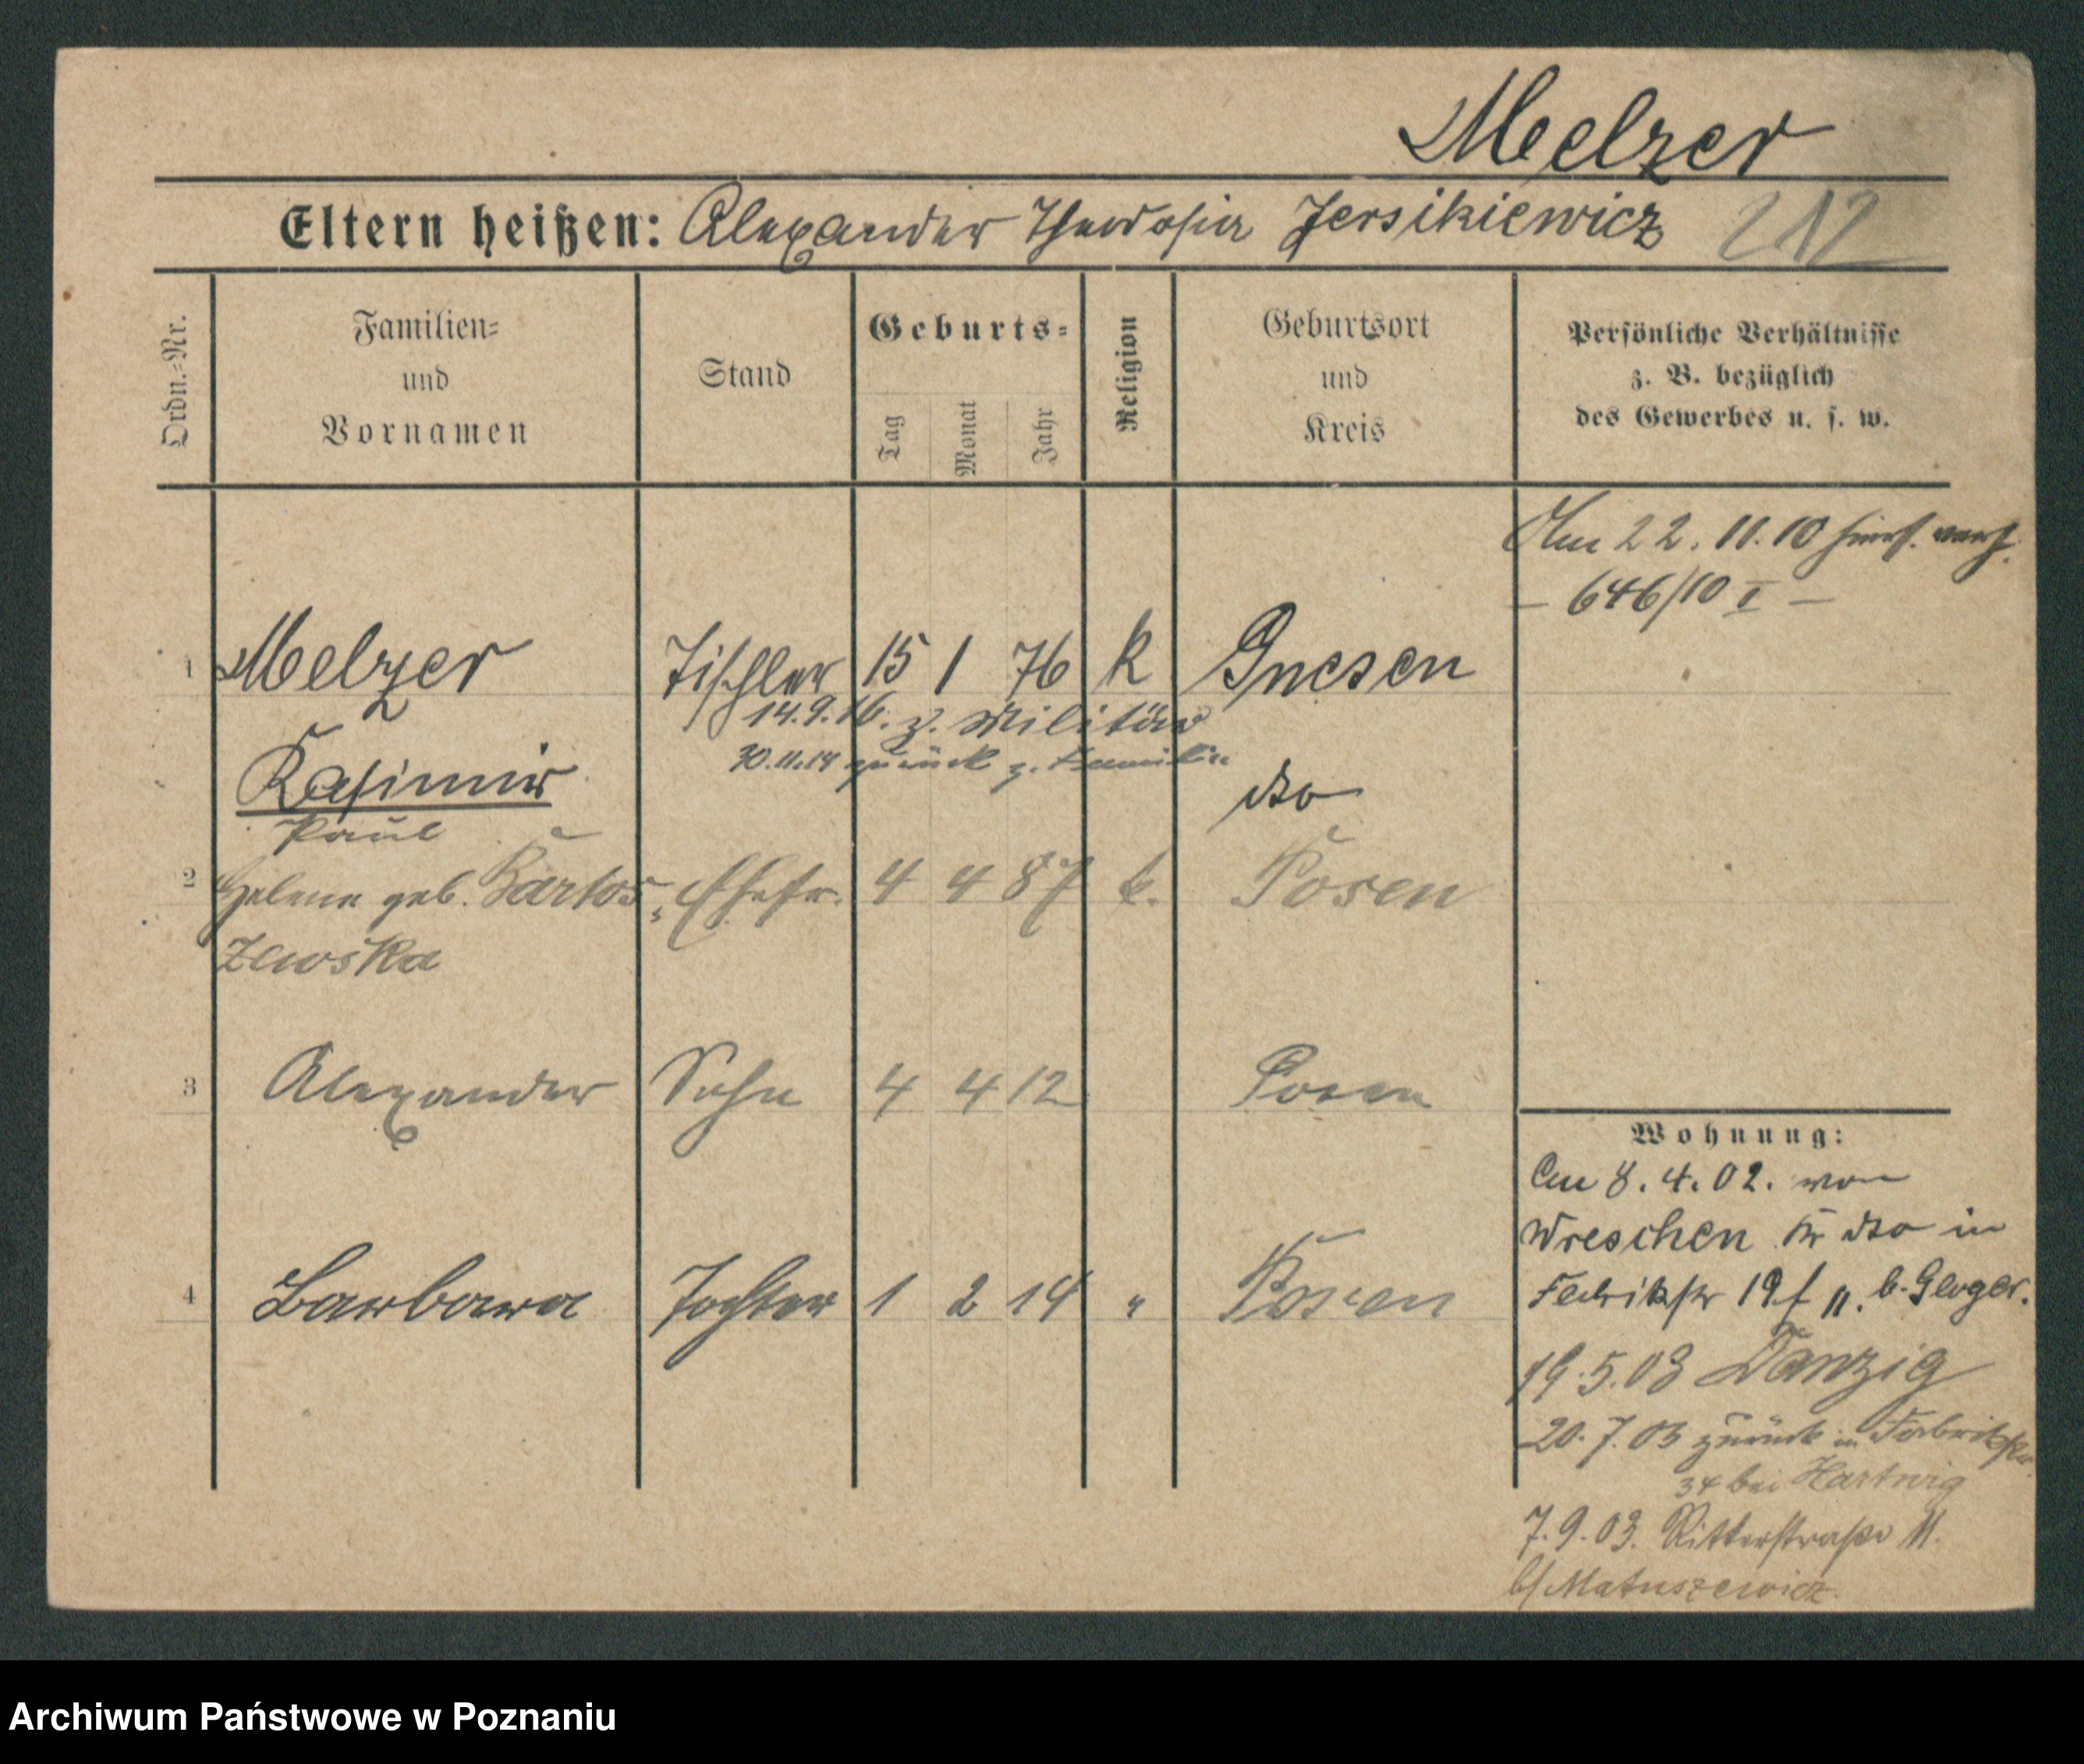 Melzer
Eltern heißen: Alexander Theodosia Jersikiewicz 212
Ordn.-Nr.
Familien-
und
Vornamen
Stand
Geburts-
Tag
Monat
Jahr
Religion
Geburtsort
und
Kreis
Persönliche Verhältnisse
z. B. bezüglich
des Gewerbes u. s. w.
Am 22. 11. 10 hierh. verh.
– 646/10 I –
1 Melzer Tischler 15 1 76 K Gnesen
14.9.16. z. Militär
30.11.18 zurück z. Familie
Kasimir dto
Paul
2 Helene geb. Bartos- Ehefr. 4 4 87 k. Posen
zewska
3 Alexander Sohn 4 4 12 Posen
4 Barbara Tochter 1 2 14 " Posen
Wohnung:
Am 8. 4. 02. von
Wreschen Kr dto in
Fabrikstr 19 b. Gloger.
19.5.03 Danzig
20.7.03 zurück in Fabrikstr.
34 bei Hartwig
7.9.03. Ritterstraße 11.
b/ Matuszewicz.
Archiwum Państwowe w Poznaniu